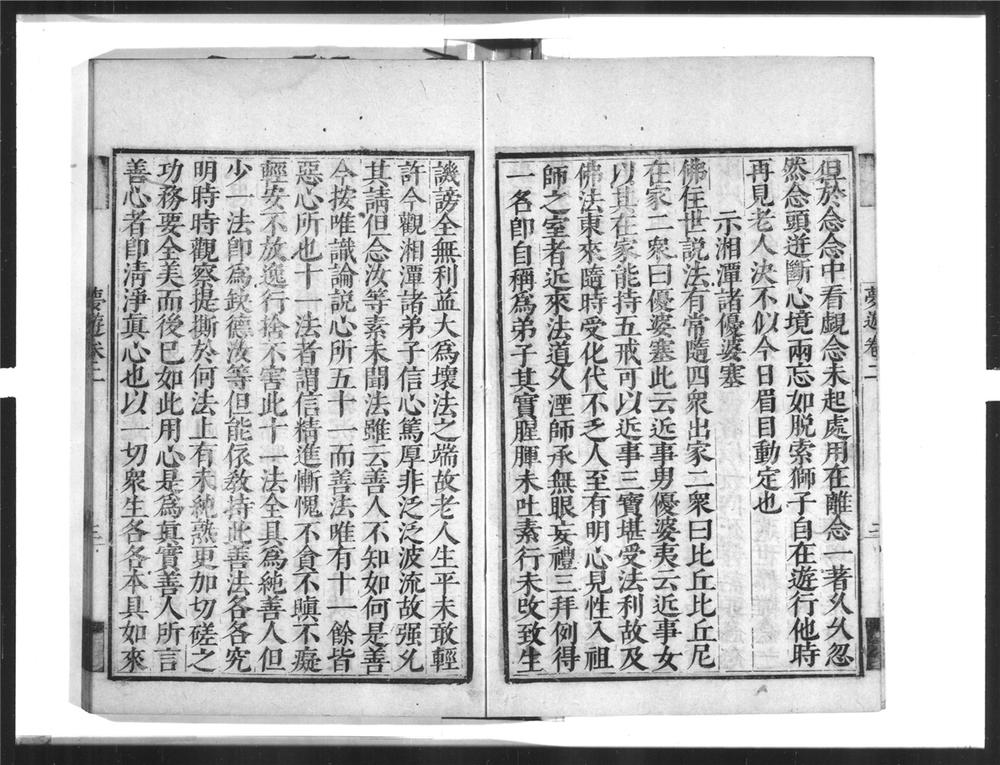 但於念念中看覷念未起處用在離念一著久久忽
然念頭迸斷心境兩忘如脫索獅子自在遊行他時
再見老人決不似今日眉目動定也
示湘潭諸優婆塞
佛住世說法有常隨四衆出家二衆曰比丘比丘尼
在家二衆曰優婆塞此云近事男優婆夷云近事女
以其在家能持五戒可以近事三寶堪受法利故及
佛法東來隨時受化代不乏人至有明心見性入祖
師之室者近來法道久湮師承無眼妄禮三拜例得
一名卽自稱爲弟子其實腥腪未吐素行未改致生
夢遊卷二
三
譏謗全無利益大爲壞法之端故老人生平未敢輕
許今觀湘潭諸弟子信心篤厚非泛泛波流故强允
其請但念汝等素未聞法雖云善人不知如何是善
今按唯識論說心所五十一而善法唯有十一餘皆
惡心所也十一法者謂信精進慚愧不貪不瞋不癡
輕安不放逸行捨不害此十一法全具爲純善人但
少一法卽爲欽德汝等但能依教持此善法各各究
明時時觀察提撕於何法上有未純熟更加切磋之
功務要全美而後已如此用心是爲眞實善人所言
善心者卽淸淨眞心也以一切衆生各各本具如來
夢遊卷二
三